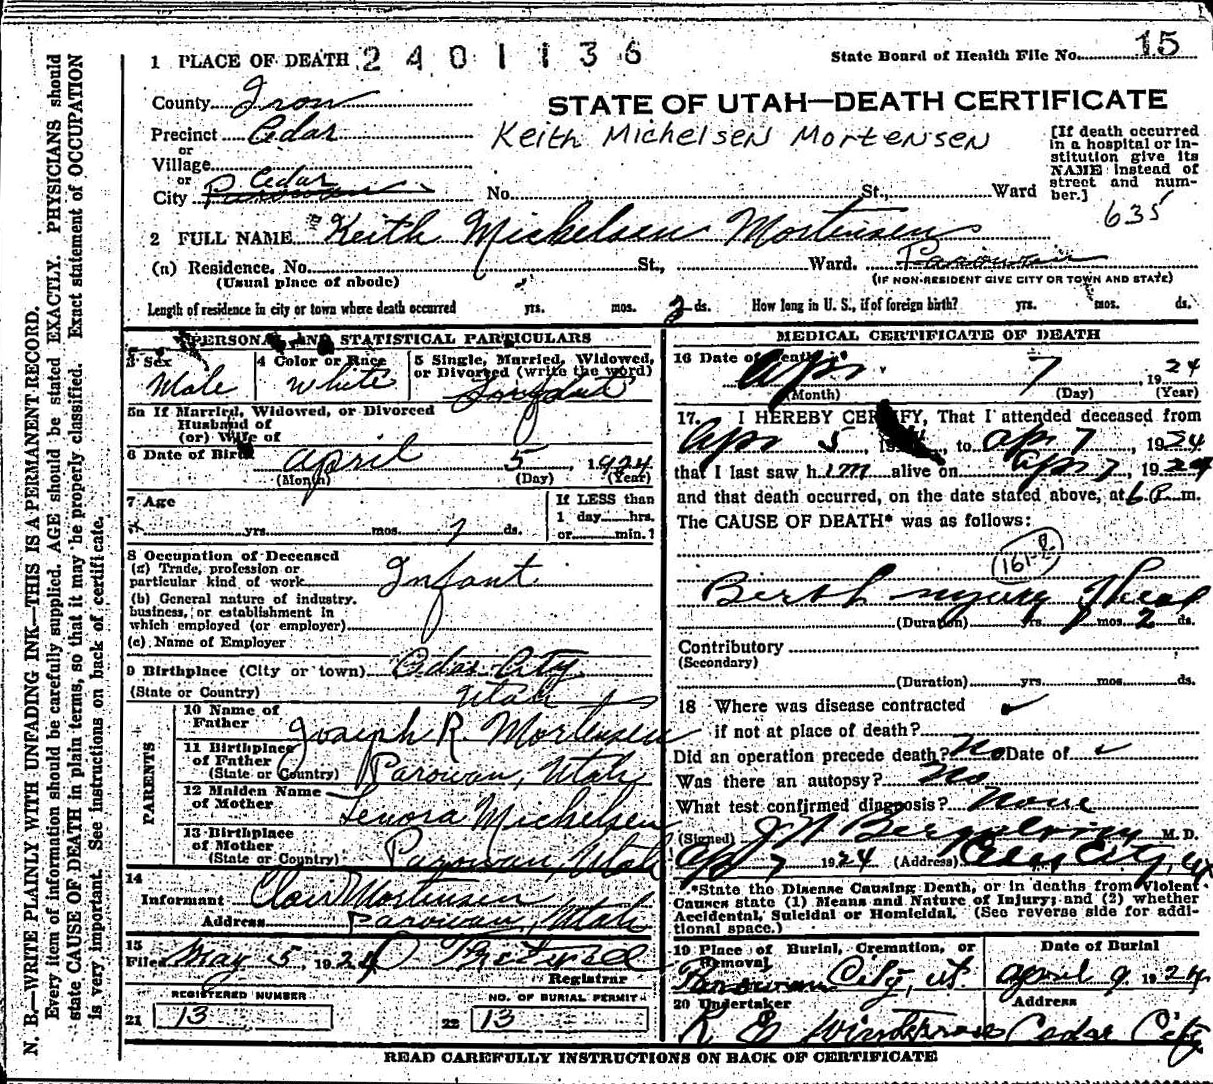 1 PLACE OF DEATH 2 4 0 1 1 3 6
State Board of Health File No. 15
County Iron
STATE OF UTAH—DEATH CERTIFICATE
Precinct Cedar
Keith Michelsen Mortensen
or
Village
or
City Cedar
No. St., Ward
[If death occurred
in a hospital or in-
stitution give its
NAME instead of
street and num-
ber.]
635
2 FULL NAME Keith Mickelsen Mortensen
(a) Residence. No. St., Ward. Parowan
(Usual place of abode)
(IF NON-RESIDENT GIVE CITY OR TOWN AND STATE)
Length of residence in city or town where death occurred yrs. mos. 2 ds. How long in U. S., if of foreign birth? yrs. mos. ds.
PERSONAL AND STATISTICAL PARTICULARS
3 Sex
Male
4 Color or Race
White
5 Single, Married, Widowed,
or Divorced (write the word)
5a If Married, Widowed, or Divorced
Husband of
(or) Wife of
6 Date of Birth April 5, 1924
(Month) (Day) (Year)
7 Age
yrs. mos. ds.
If LESS than
1 day hrs.
or min.?
8 Occupation of Deceased
(a) Trade, profession or
particular kind of work Infant
(b) General nature of industry,
business, or establishment in
which employed (or employer)
(c) Name of Employer
9 Birthplace (City or town) Cedar City
(State or Country) Utah
PARENTS
10 Name of
Father Joseph R. Mortensen
11 Birthplace
of Father
(State or Country) Parowan, Utah
12 Maiden Name
of Mother Lenora Michelsen
13 Birthplace
of Mother
(State or Country) Parowan, Utah
14
Informant Clair Mortensen
Address Parowan, Utah
15
Filed May 5, 1924
Registrar
REGISTERED NUMBER
21 13
NO. OF BURIAL PERMIT
22 13
MEDICAL CERTIFICATE OF DEATH
16 Date of Death Apr. 7, 1924
(Month) (Day) (Year)
17. I HEREBY CERTIFY, That I attended deceased from
Apr 5, 19, to Apr 7, 1924
that I last saw him alive on Apr 7, 1924
and that death occurred, on the date stated above, at 6 P. m.
The CAUSE OF DEATH* was as follows:
Birth injury
(Duration) yrs. mos. 2 ds.
Contributory
(Secondary)
(Duration) yrs. mos. ds.
18 Where was disease contracted
if not at place of death?
Did an operation precede death? No Date of
Was there an autopsy? No
What test confirmed diagnosis? None
(Signed) M. D.
Ap 7 1924 (Address) Cedar City, Ut
*State the Disease Causing Death, or in deaths from Violent
Causes state (1) Means and Nature of Injury; and (2) whether
Accidental, Suicidal or Homicidal. (See reverse side for addi-
tional space.)
19 Place of Burial, Cremation, or
Removal
Parowan City, Ut.
Date of Burial
April 9, 1924
20 Undertaker
Address
Cedar City
READ CAREFULLY INSTRUCTIONS ON BACK OF CERTIFICATE
N. B.—WRITE PLAINLY WITH UNFADING INK—THIS IS A PERMANENT RECORD.
Every item of information should be carefully supplied. AGE should be stated EXACTLY. PHYSICIANS should
state CAUSE OF DEATH in plain terms, so that it may be properly classified. Exact statement of OCCUPATION
is very important. See instructions on back of certificate.